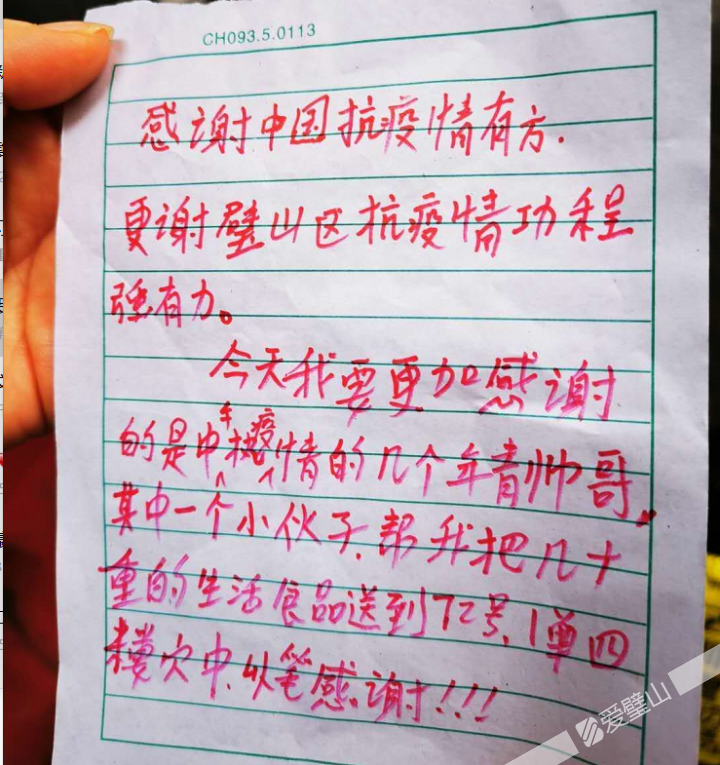 CH093.5.0113
感谢中国抗疫情有方.
更谢璧山区抗疫情功程
强有力。
今天我要更加感谢
的是中午抗疫情的几个年青帅哥.
其中一个小伙子.帮我把几十
重的生活食品送到72号.1单四
楼穴中.以笔感谢!!!
爱璧山